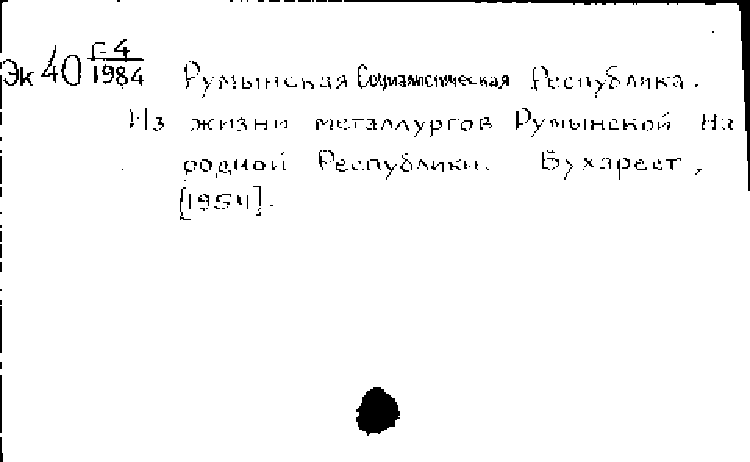 Эк 40 Г-4/1984 Румынская Социалистическая Республика.
Из жизни металлургов Румынской На
родной Республики. Бухарест,
[1954].